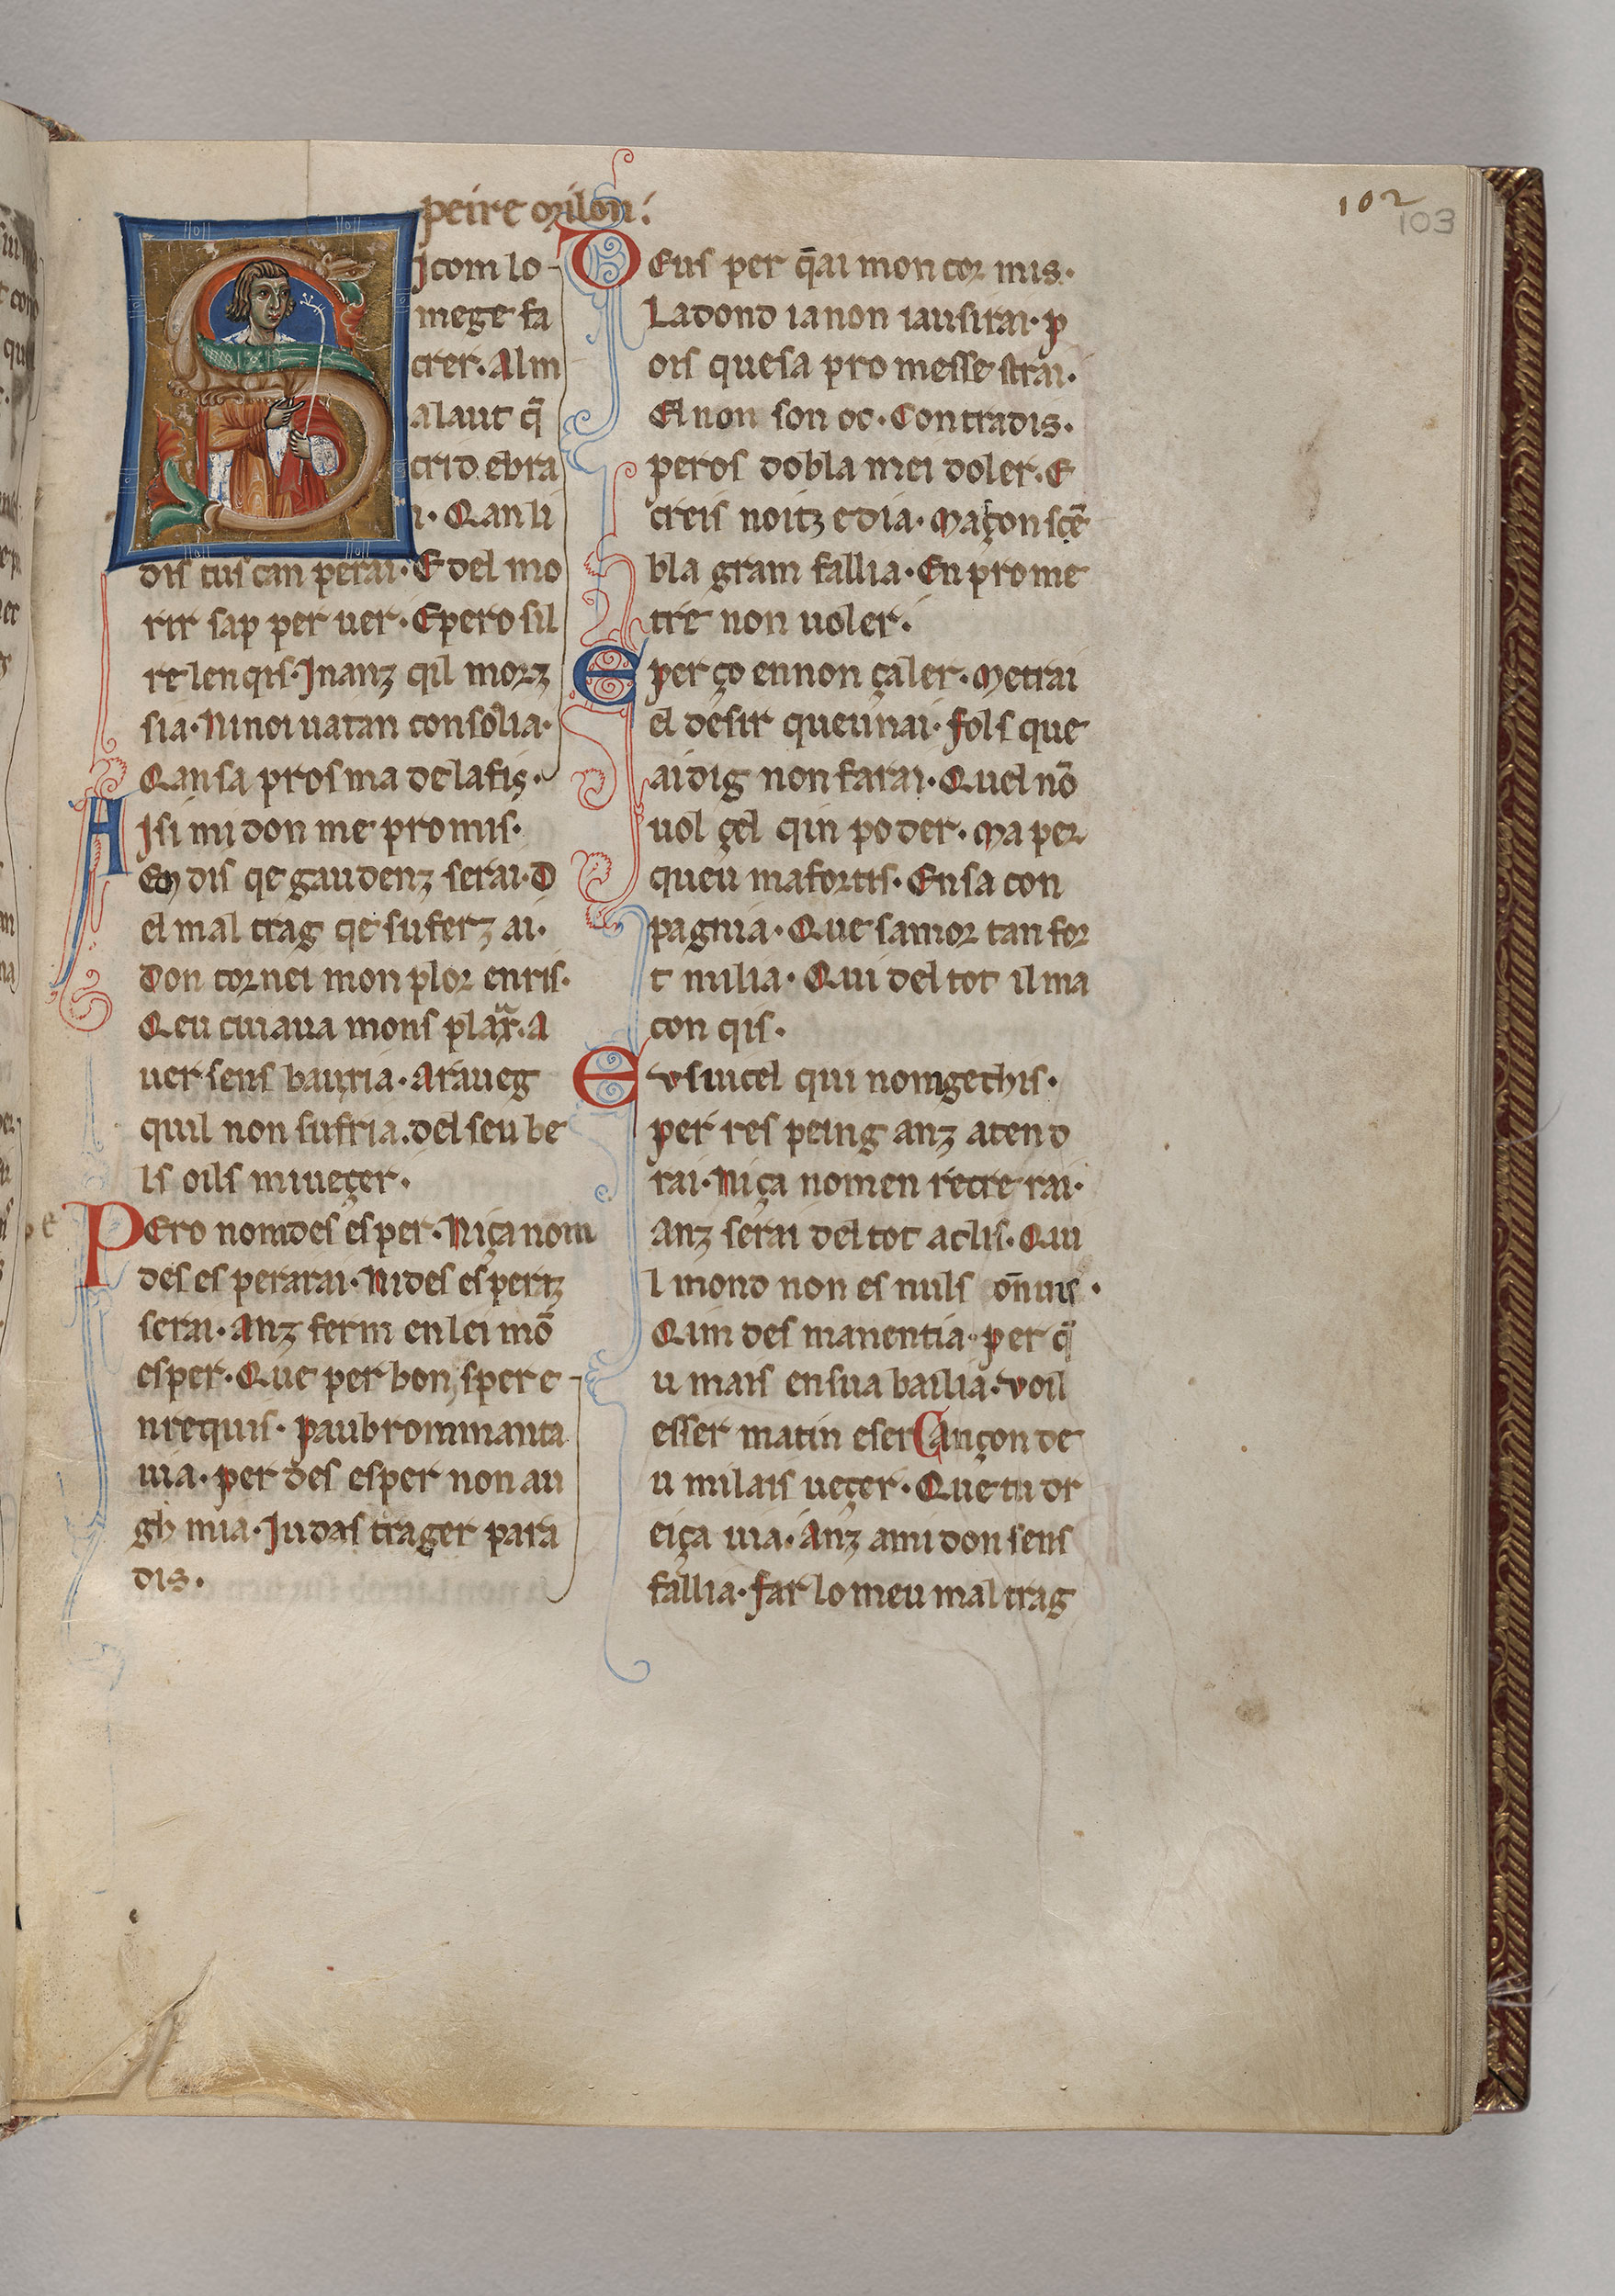 peire milon:
102
103
SJcom lo
mege fa
crer. Alm
alaut q̄
crid ebra
i. Qanli
dis cuscan perai. E del mo
rir sap per uer. Epero sil
relenqis. Jnanz qil morz
sia. Ninoi uatan consolia.
Qansa prosma de la fis.
AJsi midon me promis.
En dis qe gaudenz serai. D
el mal trag qe suferz ai.
Don tornei mon plor en ris.
Qeu cuiaua mons plaz̄. A
uer sens bauzia. Araueg
quil non sufria. del seu be
ls oils miueçer.
PEro nomdes esper. Niça nom
des es perarai. Ni des espertz
serai. Anz ferm en lei mō
esper. Que per bon sper e
nrequis. paubrom manta
uia. per des esper non au
gh mia. Judas trager para
dis.
DEus per q̄ai mon cor mis.
La dond ia non iausirai. p
ois que sa pro messe strai.
El non son oc. Contradis.
peros dobla mei doler. E
creis noitz e dia. Maçon scē
bla gram fallia. En prome
tre non uoler.
E per ço en non çaler. Metrai
el desir queunai. fols que
ai dig non farai. Quel nō
uol çel qin poder. Ma per
queu mafortis. En sa con
pagnia. Que samor tan for
t milia. Qui del tot il ma
con qis.
EVsui cel qui nom gethis.
per res peing anz atend
rai. Niça nomen recre rai.
Anz serai del tot aclis. Qui
l mond non es nuls om̄ uis.
Qim des manentia. per q̄
u mais en sua bailia. Voil
esser matin e ser Cançon de
u milais ueçer. Que tu dr
eiça uia. Anz ami don sens
fallia. far lo meu mal trag